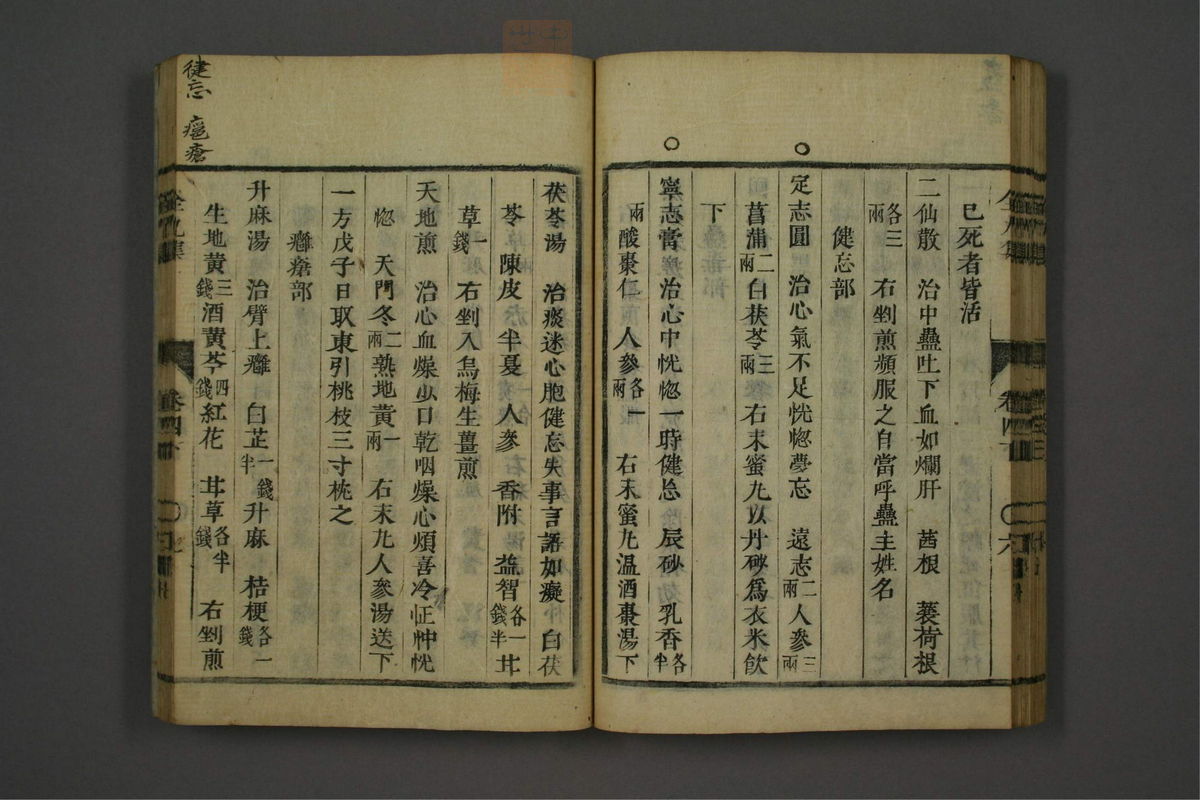 已死者皆活
二仙散　治中蠱吐下血如爛肝　茜根　蘘荷根
各三兩　右剉煎頻服之自當呼蠱主姓名
健忘部
定志圓　治心氣不足恍惚夢忘　遠志二兩人參三兩
菖蒲二兩白茯苓三兩右末蜜丸以丹砂爲衣米飮
下
寧志膏　治心中恍惚一時健忘　辰砂　乳香各半
兩酸棗仁　人參各一兩　右末蜜丸温酒棗湯下
卷四下
六
茯苓湯　治痰迷心胞健忘失事言語如癡　白茯
苓　陳皮　半夏　人參　香附　益智各一錢半　甘
草一錢　右剉入烏梅生薑煎
天地煎　治心血燥少口乾咽燥心煩喜冷怔忡恍
惚　天門冬二兩熟地黃一兩　右末丸人參湯送下
一方戊子日取東引桃枝三寸枕之
癰瘡部
升麻湯　治臂上癰　白芷一錢半升麻　桔梗各一錢
生地黃三錢酒黃芩四錢紅花　甘草各半錢　右剉煎
卷四下
健忘　瘟瘡